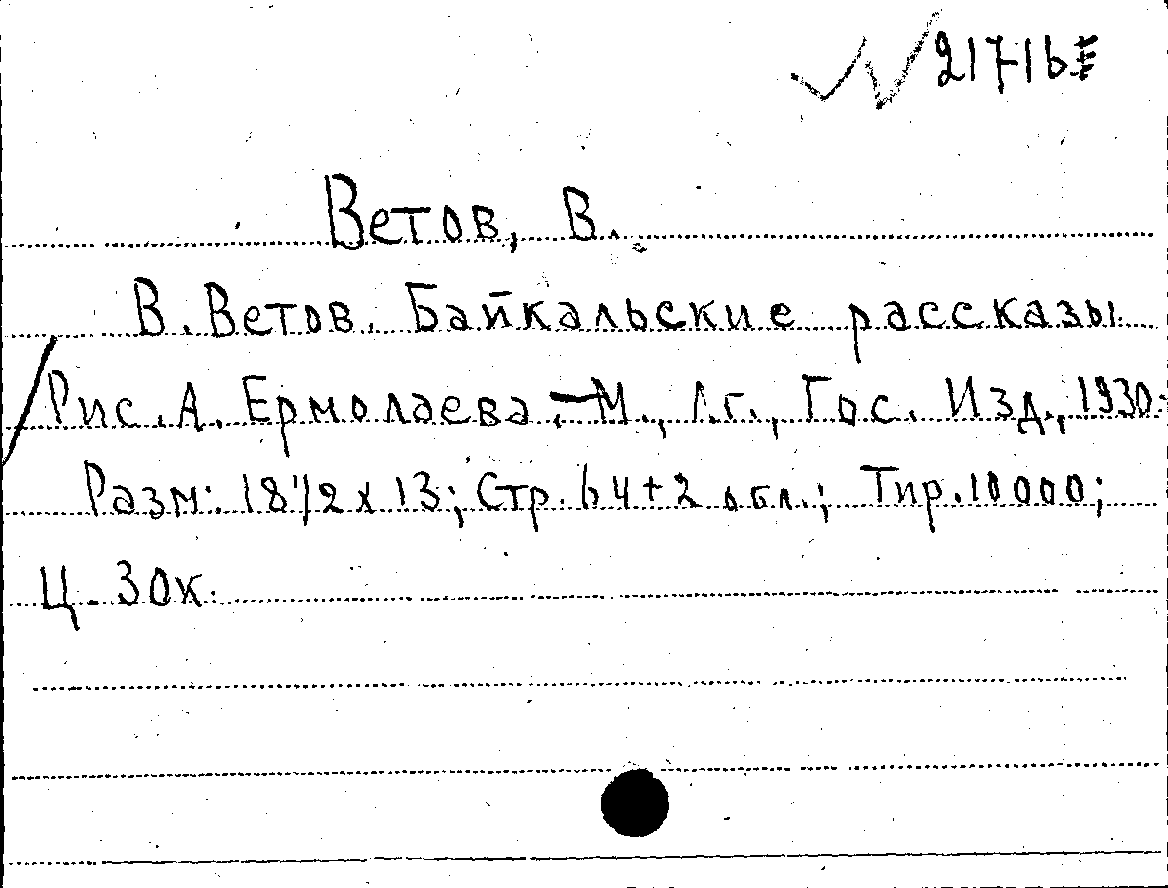 21716
Ветов, В.
В. Ветов. Байкальские рассказы.
Рис. А. Ермолаева. — М., Л.г., Гос. Изд., 1930.
Разм: 18 1/2 x 13; Стр. 64 + 2 обл.; Тир. 10000;
Ц. 30к.